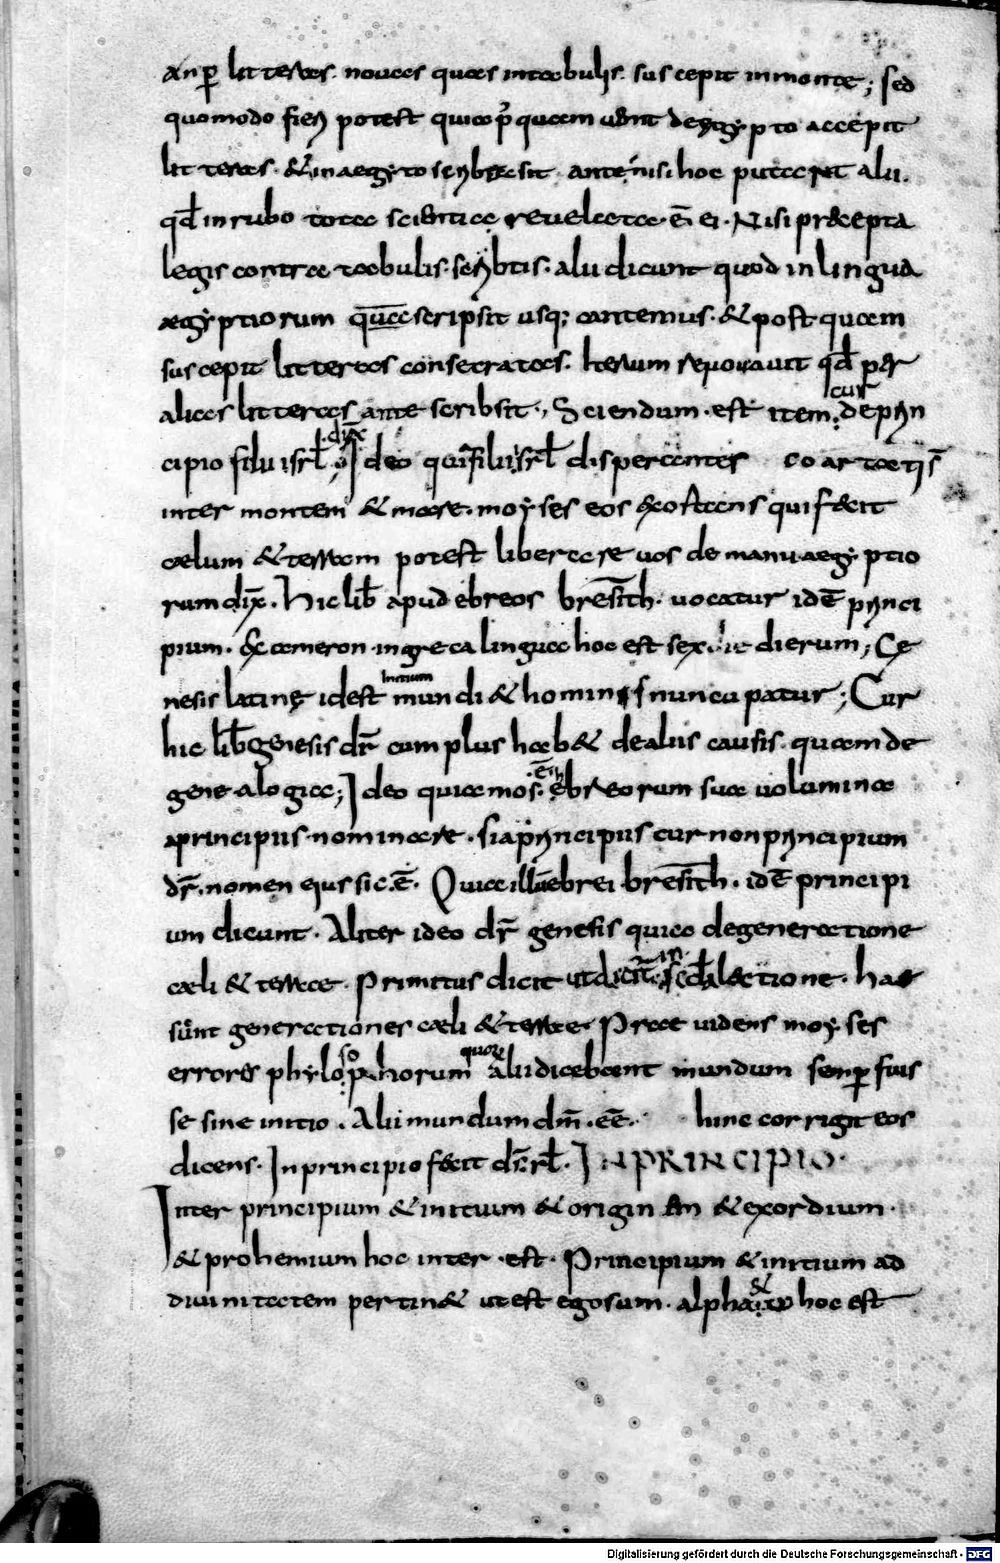 an p̄ litteras. nouas quas intabulis. suscepit inmonte; sed
quomodo fieri potest quia p̄ quam uenit deaegypto accepit
litteras. &inaegypto scribsit ante nisi hoc putarent alii.
qd̄ inrubo tota scientia reuelata. ē. ei. Nisi praecepta
legis contra tabulis. scribtis. alii dicunt quod inlingua
aegyptiorum quae scripsit usq; antemus. &postquam
suscepit litteras consecratas. Iterum renouauit qd̄ per
alias litteras ante scribsit., Sciendum. est item. cur deprin
cipio filii isrl̄. dix̄ Ideo quia filii isrl̄ disperantes coartatis
inter montem &mare. moyses eos &ostens qui fecit
caelum &terram potest liberare uos demanu aegyptio
rum dix̄. Hic lib̄ apud ebreos bresith. uocatur idē princi
pium. &ameron ingreca lingua hoc est sex dierum; Ge
nesis latine idest initium mundi & hominis nuncupatur; Cur
hic lib̄ genesis dr̄ cum plus hab& dealiis causis. quam de
genealogia; Ideo quia mos. ē. ebreorum sua uolumina
aprincipiis nominare. si aprincipiis cur non principium
dr̄. nomen eius sic. ē. Quia illū ebrei bresith. idē principi
um dicunt. Aliter ideo dr̄ genesis quia degeneratione
caeli & terrae. Primitus dicit ut dicit. in lectione. hae
sunt generationes caeli &terrae. Prae uidens moyses
errores phylosophorum quorum alii dicebant mundum semp̄ fuis
se sine initio. Alii mundum dm̄. eē. hinc corrigit eos
dicens. Inprincipio fecit INPRINCIPIO.
Inter principium &initium &origin &exordium.
&prohemium hoc inter. est. Principium &initium ad
diuinitatem pertin& ut est ego sum. alpha & ω hoc est
Digitalisierung gefördert durch die Deutsche Forschungsgemeinschaft - DFG